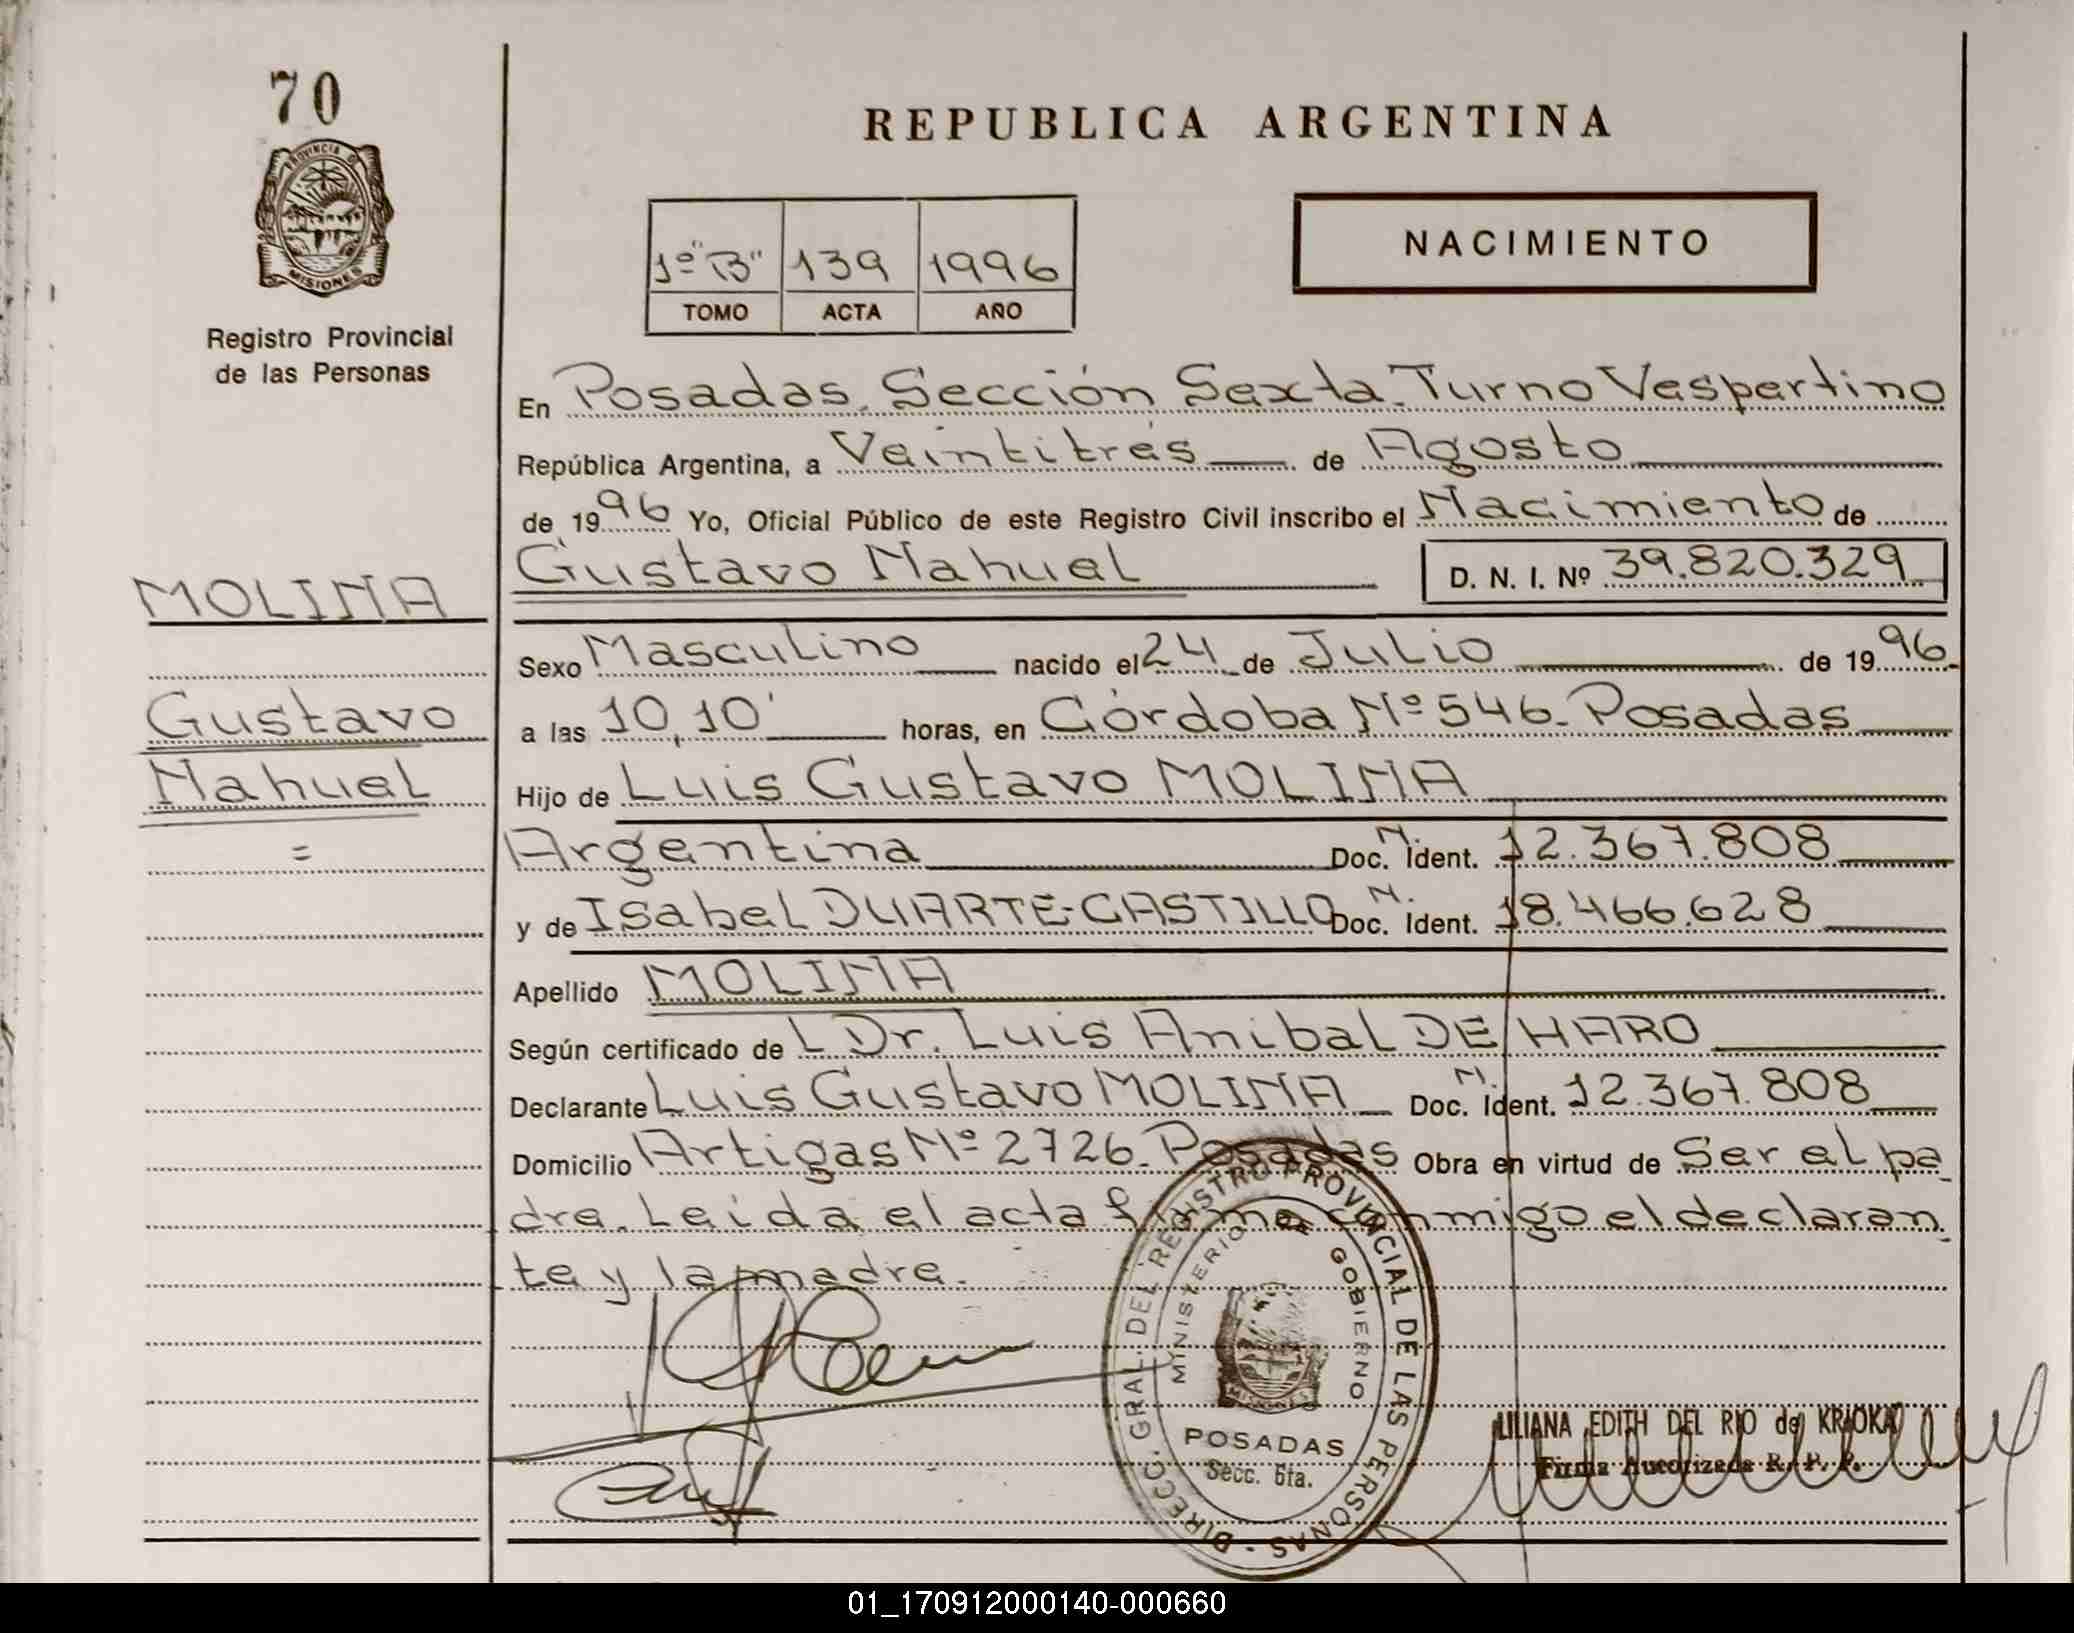 70
PROVINCIA DE
MISIONES
Registro Provincial
de las Personas
REPUBLICA ARGENTINA
1º "B" 139 1996
TOMO ACTA AÑO
NACIMIENTO
En Posadas. Sección Sexta. Turno Vespertino
República Argentina, a Veintitrés de Agosto
de 1996 Yo, Oficial Público de este Registro Civil inscribo el Nacimiento de
Gustavo Nahuel D. N. I. Nº 39.820.329
MOLINA
Sexo Masculino nacido el 24 de Julio de 1996
Gustavo
a las 10,10' horas, en Córdoba Nº 546. Posadas
Nahuel
Hijo de Luis Gustavo MOLINA
=
Argentina Doc. N. Ident. 12.367.808
y de Isabel DUARTE-CASTILLO Doc. N. Ident. 18.466.628
Apellido MOLINA
Según certificado de L Dr. Luis Anibal DE HARO
Declarante Luis Gustavo MOLINA Doc. N. Ident. 12.367.808
Domicilio Artigas Nº 2726. Posadas Obra en virtud de Ser el pa
dre. Leída el acta firma conmigo el declaran
te y la madre.
DIRECC. GRAL. DEL REGISTRO PROVINCIAL DE LAS PERSONAS
MINISTERIO DE GOBIERNO
MISIONES
POSADAS
Secc. 6ta.
LILIANA EDITH DEL RIO de KRIOKA
Firma Autorizada R. P. P.
01_170912000140-000660